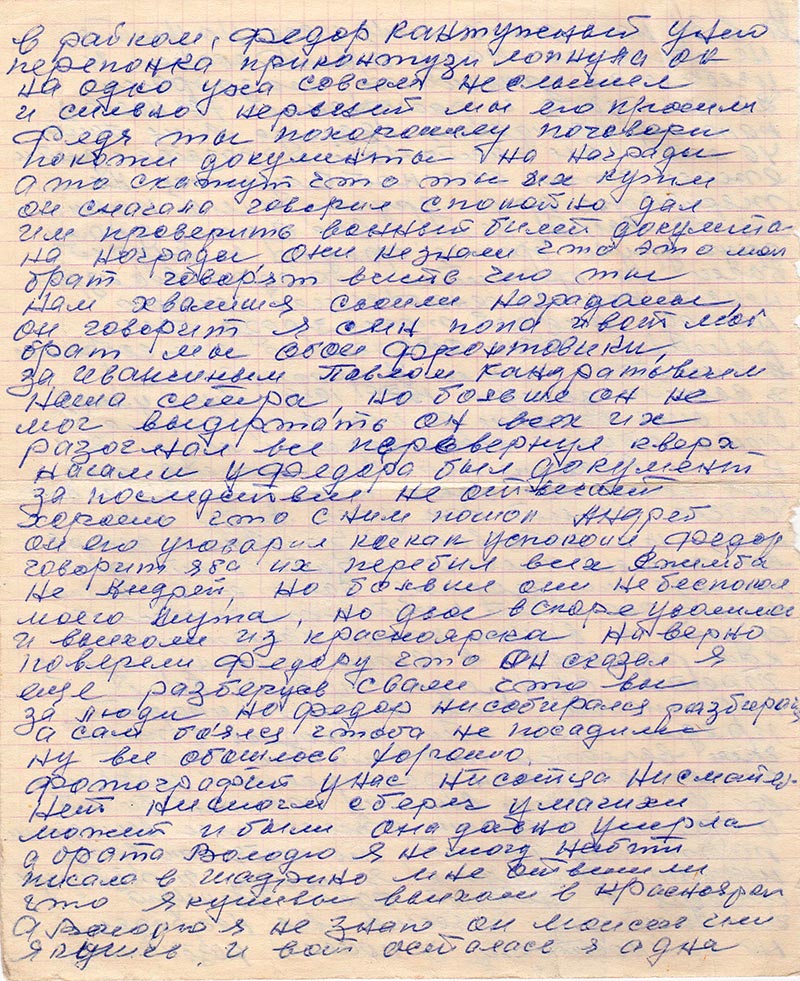 в райком, Федор кантуженый унго
перепонка приконтузи лопнула он
на одно ухо совсем неслышел
и сильно нервный мы его просили
Федя ты похорошему поговори
покажи документы на награды
а то скажут что ты их купил
он сначала говорил спокойно дал
им проверить военный билет документы
на награды они незнали что это мой
брат говорят видиш что ты
нам хвалишся своими наградами,
он говорит я сын попа твой мой
брат мы обои фронтовики,
за Иванчиным Павлом Кандратьвичем
наша сестра, но больше он не
мог выдержать он всех их
разогнал все перевернул кверх
нагами у Федора был документ
за последствии не отвечает
хорошо что с ним пошол Андрей
он его уговорил коекак успокоил, Федор
говорит я ба их перебил всех ежлиба
не Андрей, но больше они небеспокоя
моего мужа, но двое вскоре уволились
и выехали из Красноярска наверно
поверели Федору что он сказал я
еще разберусь свами что вы
за люди но Федор нисобирался разбират
а сам боялся чтоба не посадили
ну все обошлось хорошо.
фотографий унас ни отца ни матер-
нет нисмогли сберечь у мачихи
может и были она давно умерла
а брата Володю я немогу найти
писала в Шадрино мне ответили
что Якушевы выехали в Красноярск
а Володю я не знаю он Моисеев или
Якушев, и вот осталась я адна